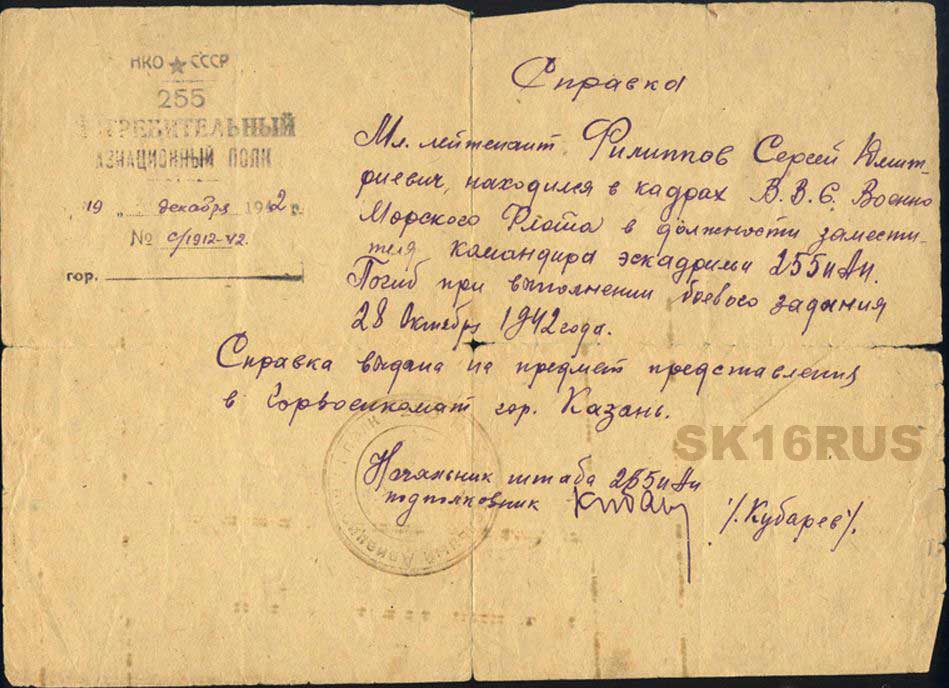 НКО ★ СССР
255
ИСТРЕБИТЕЛЬНЫЙ
АВИАЦИОННЫЙ ПОЛК
"19" декабря 1942 г.
№ с/1912-42.
гор.
Справка
Мл. лейтенант Филиппов Сергей Дмит-
риевич, находился в кадрах В.В.С. Военно
Морского Флота в должности замести-
теля командира эскадрильи 255 иАп.
Погиб при выполнении боевого задания
28 Октября 1942 года.
Справка выдана на предмет представления
в Горвоенкомат гор. Казань.
SK16RUS
Начальник штаба 255 иАп
подполковник
/.Кубарев/.